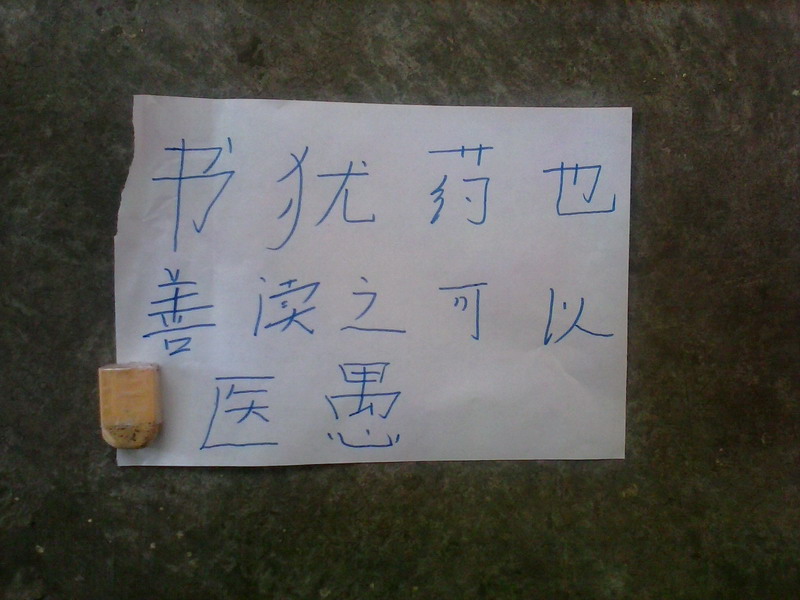 书犹药也
善读之可以
医愚